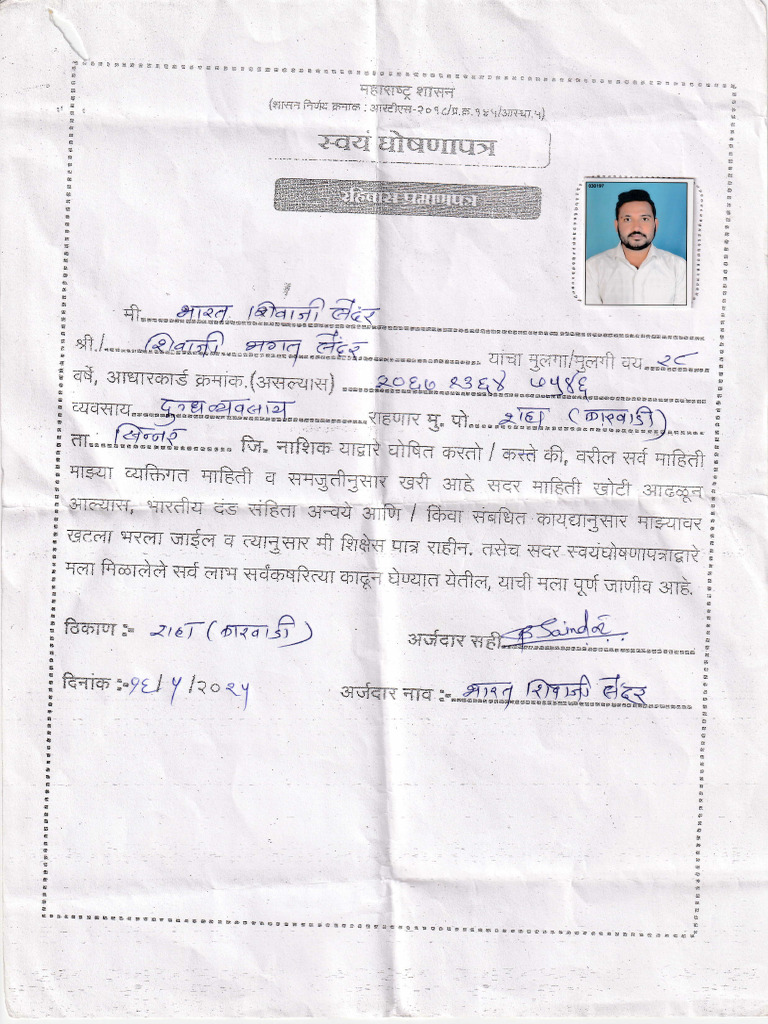 महाराष्ट्र शासन
(शासन निर्णय क्रमांक : आरटीएस-२०१८/प्र.क्र.१४५/आस्था.५)
स्वयं घोषणापत्र
रहिवास प्रमाणपत्र
030197
मी. भारत शिवाजी सैंदर
श्री./ शिवाजी भगत सैंदर यांचा मुलगा/मुलगी वय २८
वर्षे, आधारकार्ड क्रमांक.(असल्यास) २०६७ २३६४ ७५४६
व्यवसाय दुग्धव्यवसाय राहणार मु. पो. शहा (कारवाडी)
ता. सिन्नर जि. नाशिक याद्वारे घोषित करतो / करते की, वरील सर्व माहिती
माझ्या व्यक्तिगत माहिती व समजुतीनुसार खरी आहे. सदर माहिती खोटी आढळून
आल्यास, भारतीय दंड संहिता अन्वये आणि / किंवा संबंधित कायद्यानुसार माझ्यावर
खटला भरला जाईल व त्यानुसार मी शिक्षेस पात्र राहीन. तसेच सदर स्वयंघोषणापत्राद्वारे
मला मिळालेले सर्व लाभ सर्वंकषरित्या काढून घेण्यात येतील, याची मला पूर्ण जाणीव आहे.
ठिकाण :- शहा (कारवाडी) अर्जदार सही B Saindar
दिनांक :- १६/५/२०२५ अर्जदार नाव :- भारत शिवाजी सैंदर